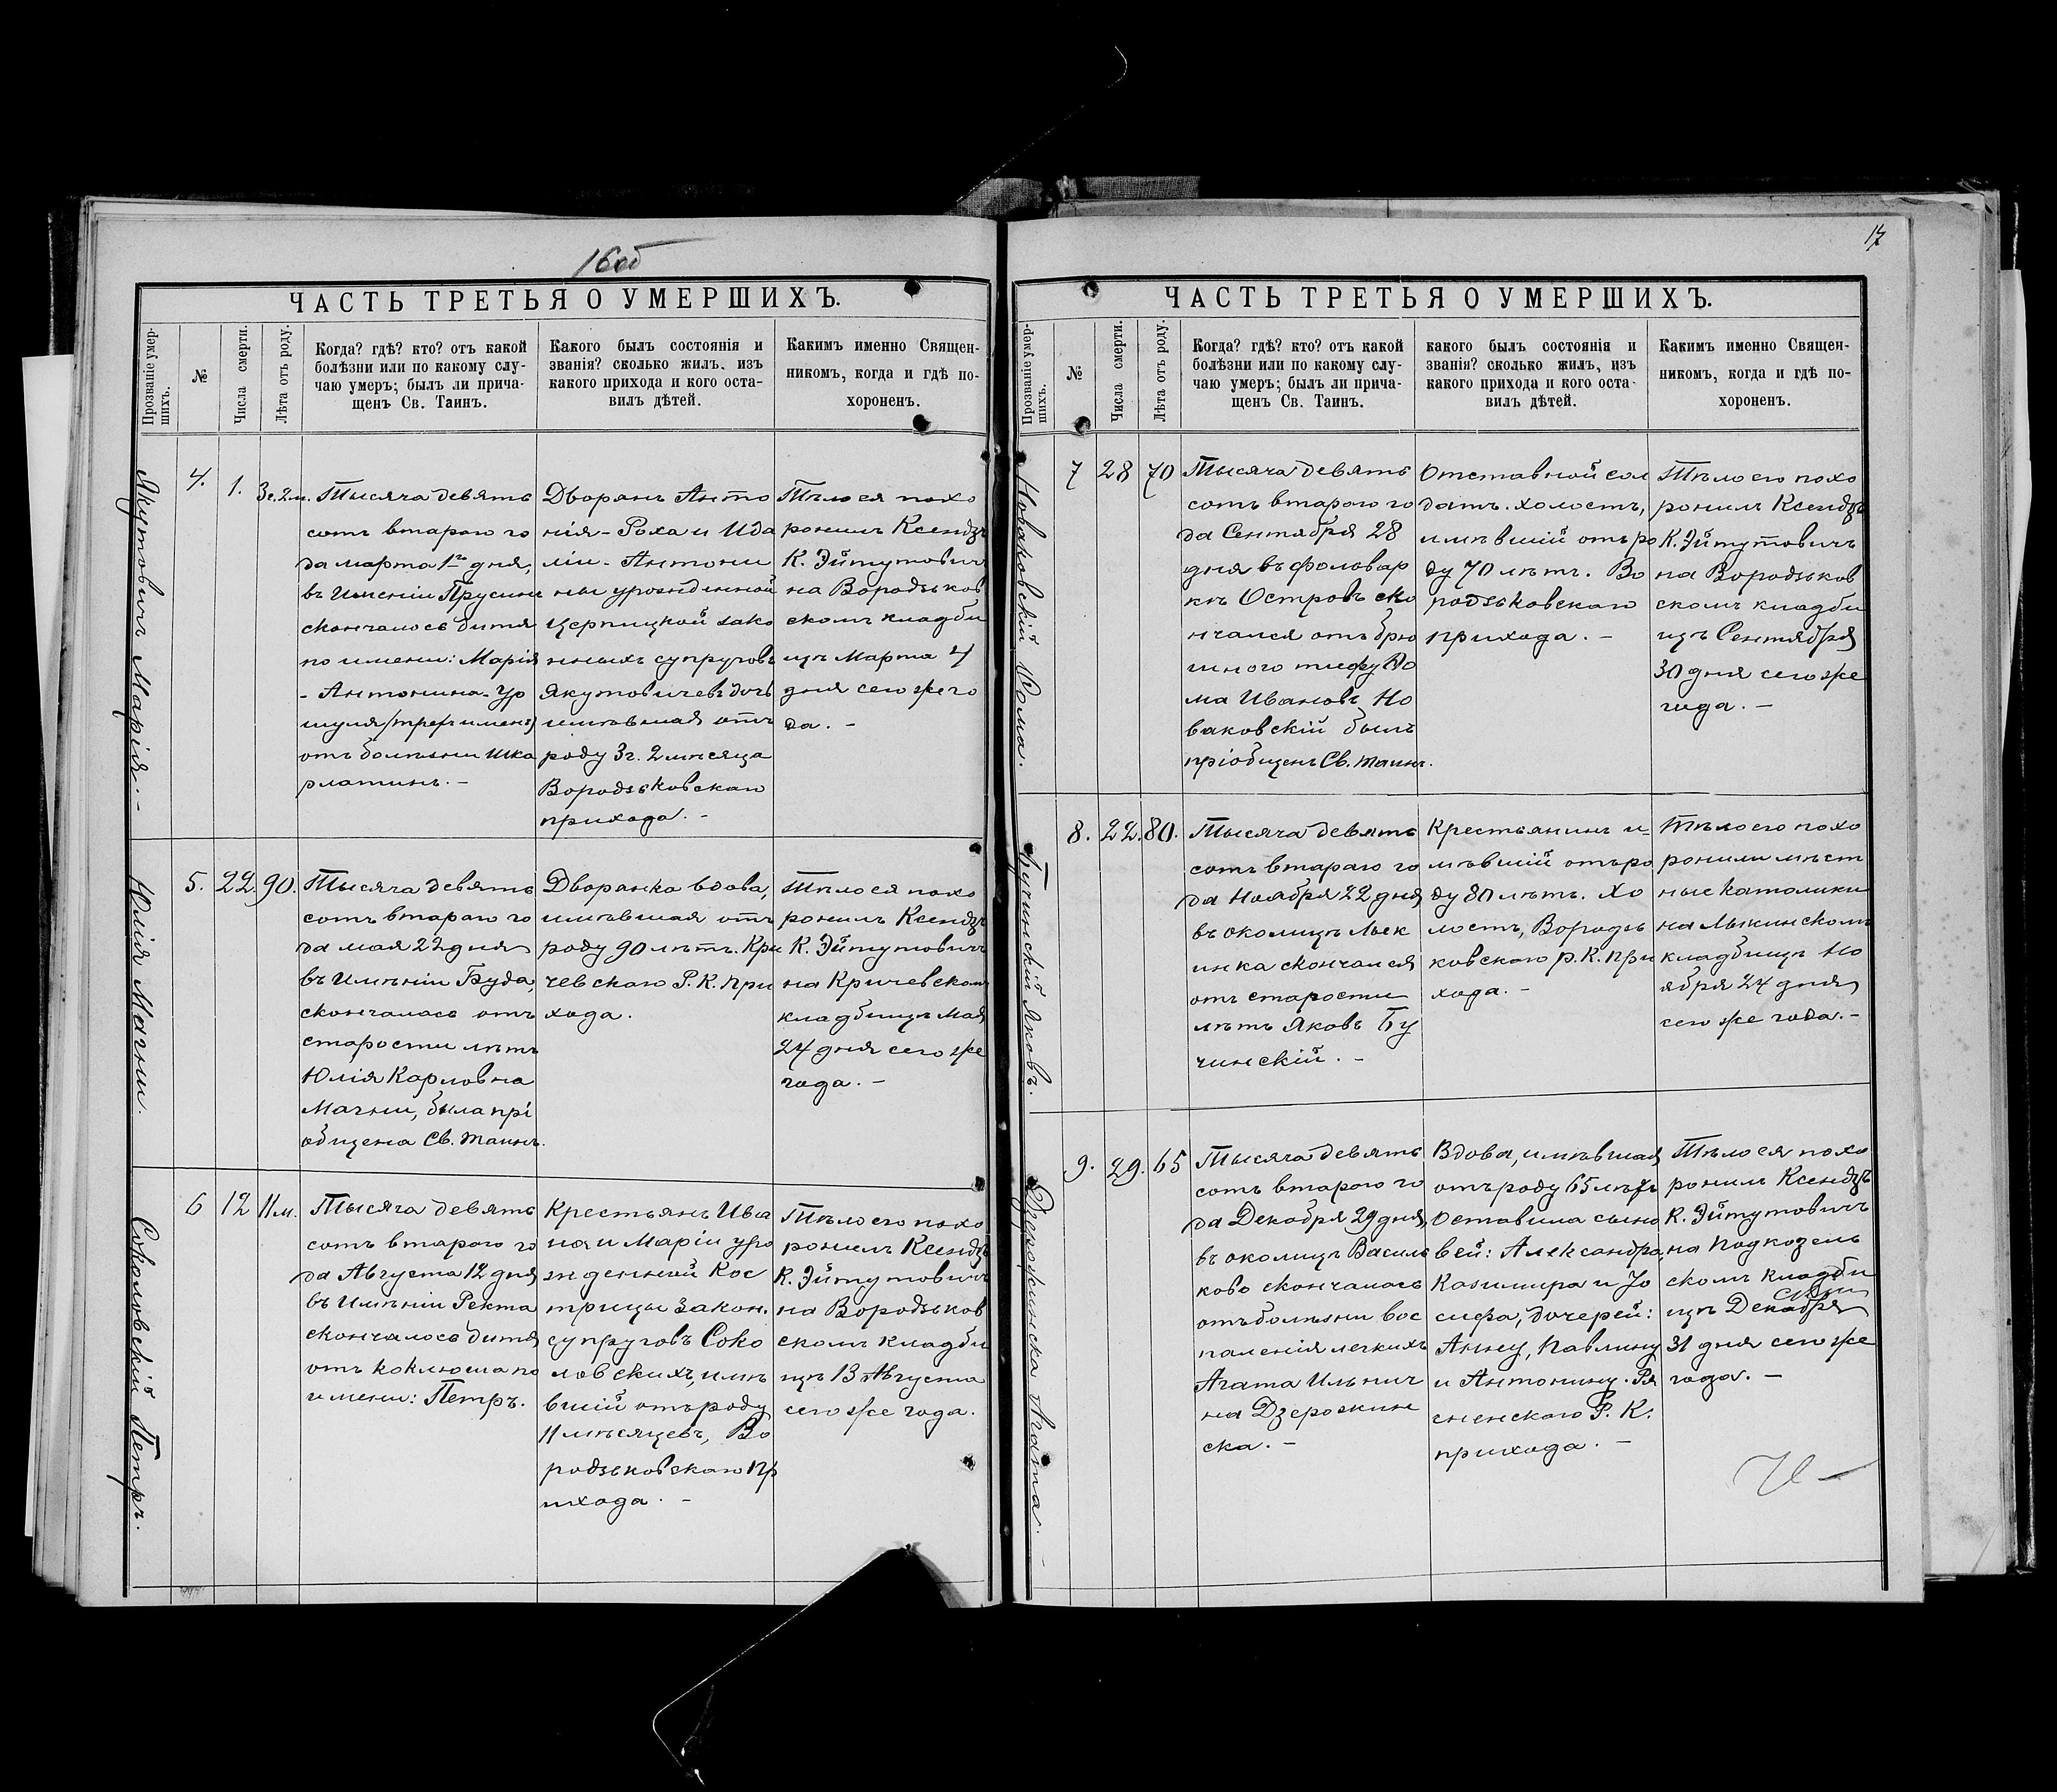 16об
ЧАСТЬ ТРЕТЬЯ О УМЕРШИХЪ.
Прозваніе умер-
шихъ.
№
Числа смерти.
Лѣта отъ роду.
Когда? гдѣ? кто? отъ какой
болѣзни или по какому слу-
чаю умеръ; былъ ли прича-
щенъ Св. Таинъ.
Какого былъ состоянія и
званія? сколько жилъ, изъ
какого прихода и кого оста-
вилъ дѣтей.
Какимъ именно Священ-
никомъ, когда и гдѣ по-
хороненъ.
Якутовичъ Марія.-
4.
1.
3г.2м.
Тысяча девять
сотъ втораго го
да марта 1го дня,
въ Имѣніи Прусины
скончалось дитя
по имени: Марія
- Антонина-Ур
шуля (трехъ именъ)
отъ болѣзни шка
рлатинъ.-
Дворянъ Анто
нія-Роха и Ида
ліи-Антони
ны урожденной
Церпицкой зако
нныхъ супруговъ
Якутовичевъ дочь
имѣвшая отъ
роду 3г. 2мѣсяца
Вородзьковскаго
прихода.-
Тѣло ея похо
ронилъ Ксендзъ
К. Эйтутовичъ
на Вородзьков
скомъ кладби
щѣ Марта 4
дня сего же го
да.-
Юлія Мачни.
5.
22.
90.
Тысяча девять
сотъ втораго го
да мая 22 дня
въ Имѣніи Буда,
скончалась отъ
старости лѣтъ
Юлія Карловна
Мачни, была прі
общена Св. Таинъ.
Дворянка вдова,
имѣвшая отъ
роду 90 лѣтъ. Кри
чевскаго Р. К. при
хода.
Тѣло ея похо
ронилъ Ксендзъ
К. Эйтутовичъ
на Кричевскомъ
кладбищѣ Мая
24 дня сего же
года.-
Соколовскій Петръ.
6
12
11м.
Тысяча девять
сотъ втораго го
да Августа 12 дня
въ Имѣніи Ректа
скончалось дитя
отъ коклюша по
имени: Петръ.
Крестьянъ Ива
на и Маріи уро
жденной Кос
трицы закон.
супруговъ Соко
ловскихъ, имѣ
вшій отъ роду
11 мѣсяцевъ, Во
родзьковскаго пр
ихода.-
Тѣло его похо
ронилъ Ксендзъ
К. Эйтутовичъ
на Вородзьков
скомъ кладби
щѣ 13 Августа
сего же года.
17
ЧАСТЬ ТРЕТЬЯ О УМЕРШИХЪ.
Прозваніе умер-
шихъ.
№
Числа смерти.
Лѣта отъ роду.
Когда? гдѣ? кто? отъ какой
болѣзни или по какому слу-
чаю умеръ; былъ ли прича-
щенъ Св. Таинъ.
какого былъ состоянія и
званія? сколько жилъ, изъ
какого прихода и кого оста-
вилъ дѣтей.
Какимъ именно Священ-
никомъ, когда и гдѣ по-
хороненъ.
Новаковскій Фома.
7
28
70
Тысяча девять
сотъ втораго го
да Сентября 28
дня въ фольвар
кѣ Островъ ско
нчался отъ брю
шного тифу Ѳо
ма Ивановъ Но
ваковскій былъ
пріобщенъ Св. таинъ.
Отставной сол
датъ. холостъ,
имѣвшій отъ ро
ду 70 лѣтъ. Во
родзьковскаго
прихода.-
Тѣло его похо
ронилъ Ксендзъ
К. Эйтутовичъ
на Вородзьков
скомъ кладби
щѣ Сентября
30 дня сего же
года.-
Бучинскій Яковъ.
8.
22.
80.
Тысяча девять
сотъ втораго го
да Ноября 22 дня
въ околицѣ
скончался
отъ старости
лѣтъ Яковъ Бу
чинскій.-
Крестьянинъ и-
мѣвшій отъ ро
ду 80 лѣтъ. Хо
лостъ, Вородзь
ковскаго р. К. при
хода.-
Тѣло его похо
ронили мѣст
ные католики
на
кладбищѣ Но
ября 24 дня
сего же года.-
Дзержинска Агата.-
9.
29.
65
Тысяча девять
сотъ втораго го
да Декабря 29 дня
въ околицѣ Василь
ково скончалась
отъ болѣзни вос
паленія легкихъ
Агата Ильнич
на Дзержин
ска.-
Вдова, имѣвшая
отъ роду 65 лѣтъ
Оставила сыно
вей: Александра,
Казимира и Іо
сифа, дочерей:
Анну, Павлину
и Антонину. Ря
сненскаго Р. К.
прихода.-
Тѣло ея похо
ронилъ Ксендзъ
К. Эйтутовичъ
на Подкозель
скомъ кладби
щѣ Декабря
31 дня сего же
года.-